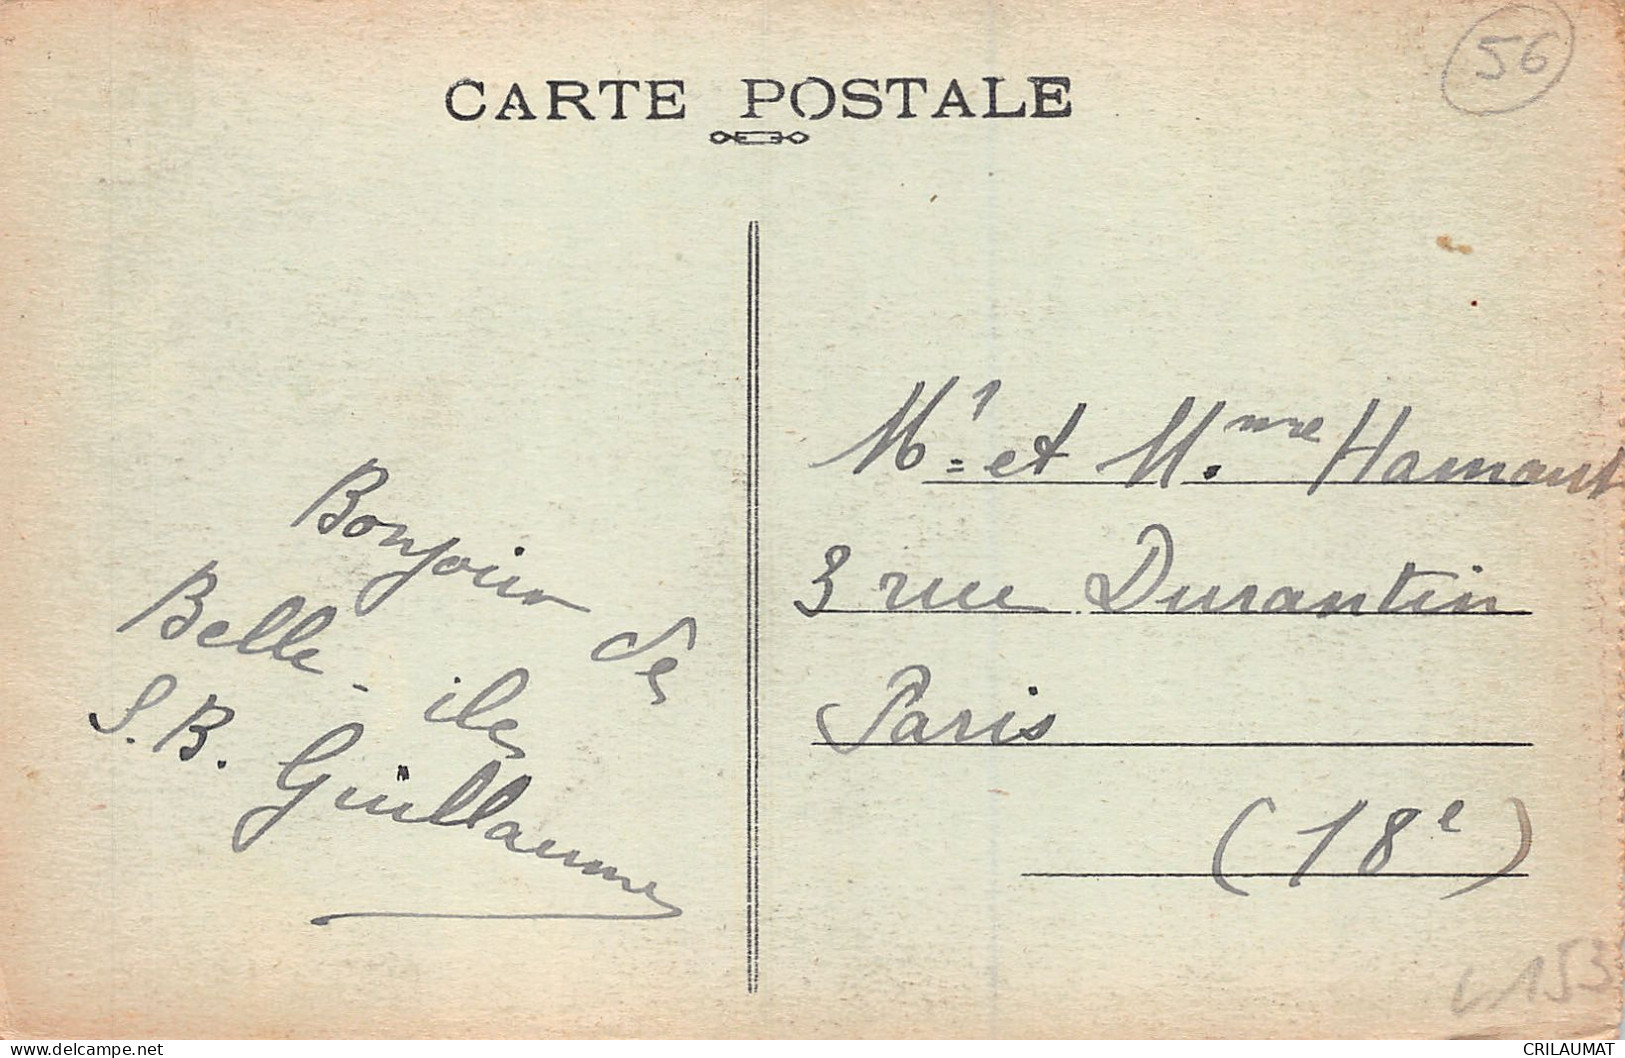 56
CARTE POSTALE
Bonjour de
Belle-iles
S.B. Guillaume
Mr et M.me Hamant
3 rue Durantin
Paris
(18e)
153
delcampe.net
CRILAUMAT